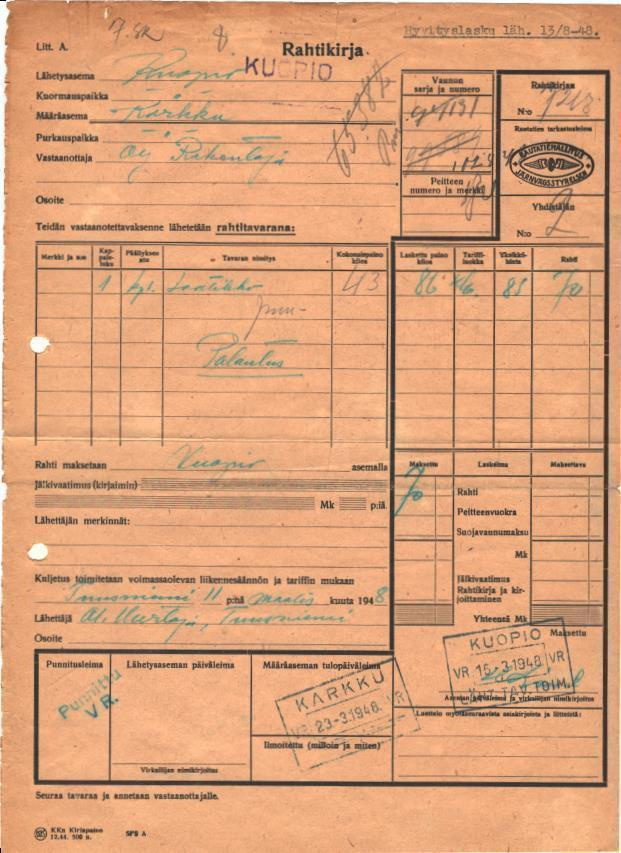 Hyvityslasku läh. 13/8-48.
Litt. A.
Rahtikirja
Lähetysasema Kuopio KUOPIO
Kuormauspaikka
Määräasema Karkku
Purkauspaikka
Vastaanottaja Oy Rakentaja
Osoite
Vaunun sarja ja numero
Peitteen numero ja merkki
Rahtikirjan
N:o
Rautatien tarkastusleima
RAUTATIEHALLITUS
JÄRNVÄGSSTYRELSEN
Yhdistäjän
N:o 2
Teidän vastaanotettavaksenne lähetetään rahtitavarana:
Merkki ja n:o Kappaleluku Päällyksen laatu Tavaran nimitys Kokonaispaino kiloa Laskettu paino kiloa Tariffiluokka Yksikköhinta Rahti
1 kpl. Laatikko 43 86 83 70
puu-
Palautus
Rahti maksetaan Kuopio asemalla
Jälkivaatimus (kirjaimin)
Mk p:iä.
Lähettäjän merkinnät:
Maksettu Laskelma Maksettava
70 Rahti
Peitteenvuokra
Suojavaunumaksu
Mk
Jälkivaatimus
Rahtikirja ja kirjoittaminen
Yhteensä Mk
Kuljetus toimitetaan voimassaolevan liikennesäännön ja tariffin mukaan
Tuusniemi 11 p:nä maalis kuuta 1948
Lähettäjä Tuusniemi
Osoite
Maksettu
KUOPIO
VR 15-3.1948 VR
LÄHETTÄVTOIM.
Aseman päiväleima ja virkailijan nimikirjoitus
Punnitusleima
Punnittu
V R.
Lähetysaseman päiväleima
Virkailijan nimikirjoitus
Määräaseman tulopäiväleima
KARKKU
VR. 23-3.1948. VR
Ilmoitettu (milloin ja miten)
Luettelo myötäseuraavista asiakirjoista ja liitteistä:
Seuraa tavaraa ja annetaan vastaanottajalle.
KKn Kirjapaino
12.44. 500 n.
SFS A